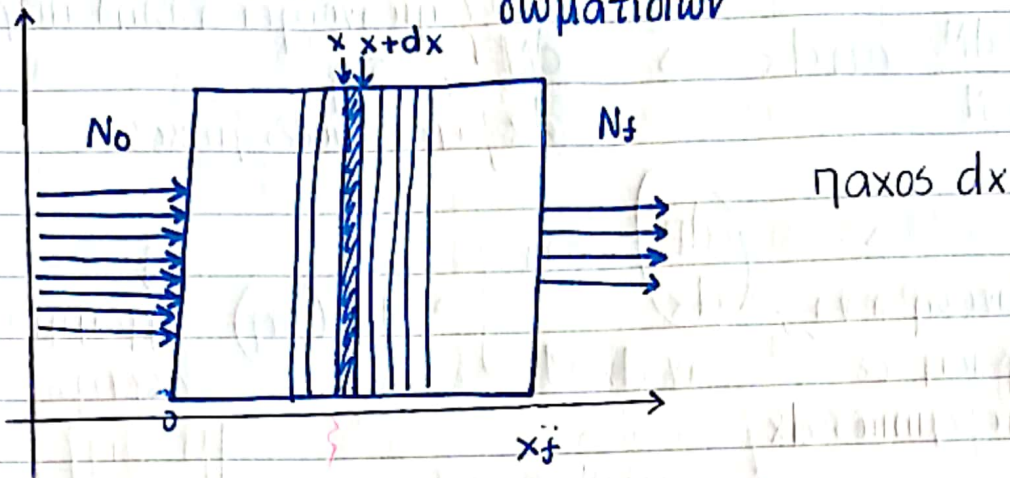 σωματιδίων
x x+dx
N₀ N_f
παχος dx
0
x_f